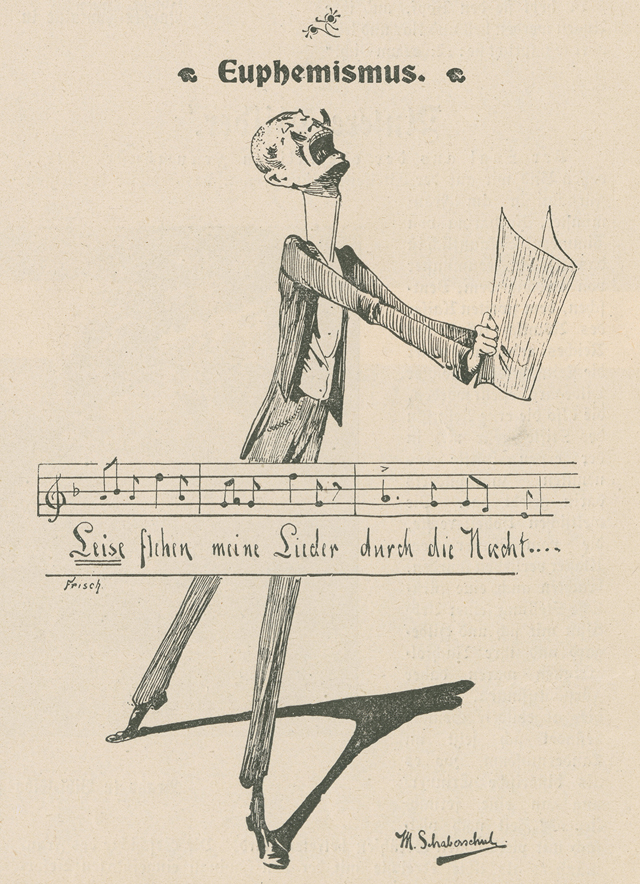 Euphemismus.
Leise flehen meine Lieder durch die Nacht....
Frisch.
M.